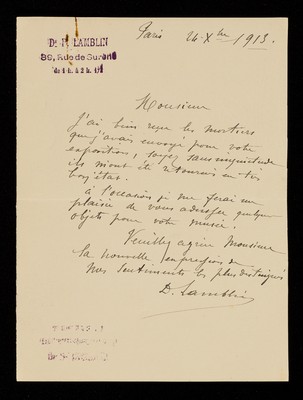 Dr P. LAMBLIN
39, Rue de Surène
de 1 h. à 2 h. ½
Paris 24 Xbre 1913.
Monsieur
J'ai bien reçu les mortiers
que j'avais envoyé pour votre
exposition, soyez sans inquiétude
ils m'ont été retournés en très
bon état.
à l'occasion je me ferai un
plaisir de vous adresser quelques
objets pour votre musée.
Veuillez agréer Monsieur
la nouvelle expression de
mes sentiments les plus distingués
D. Lamblin